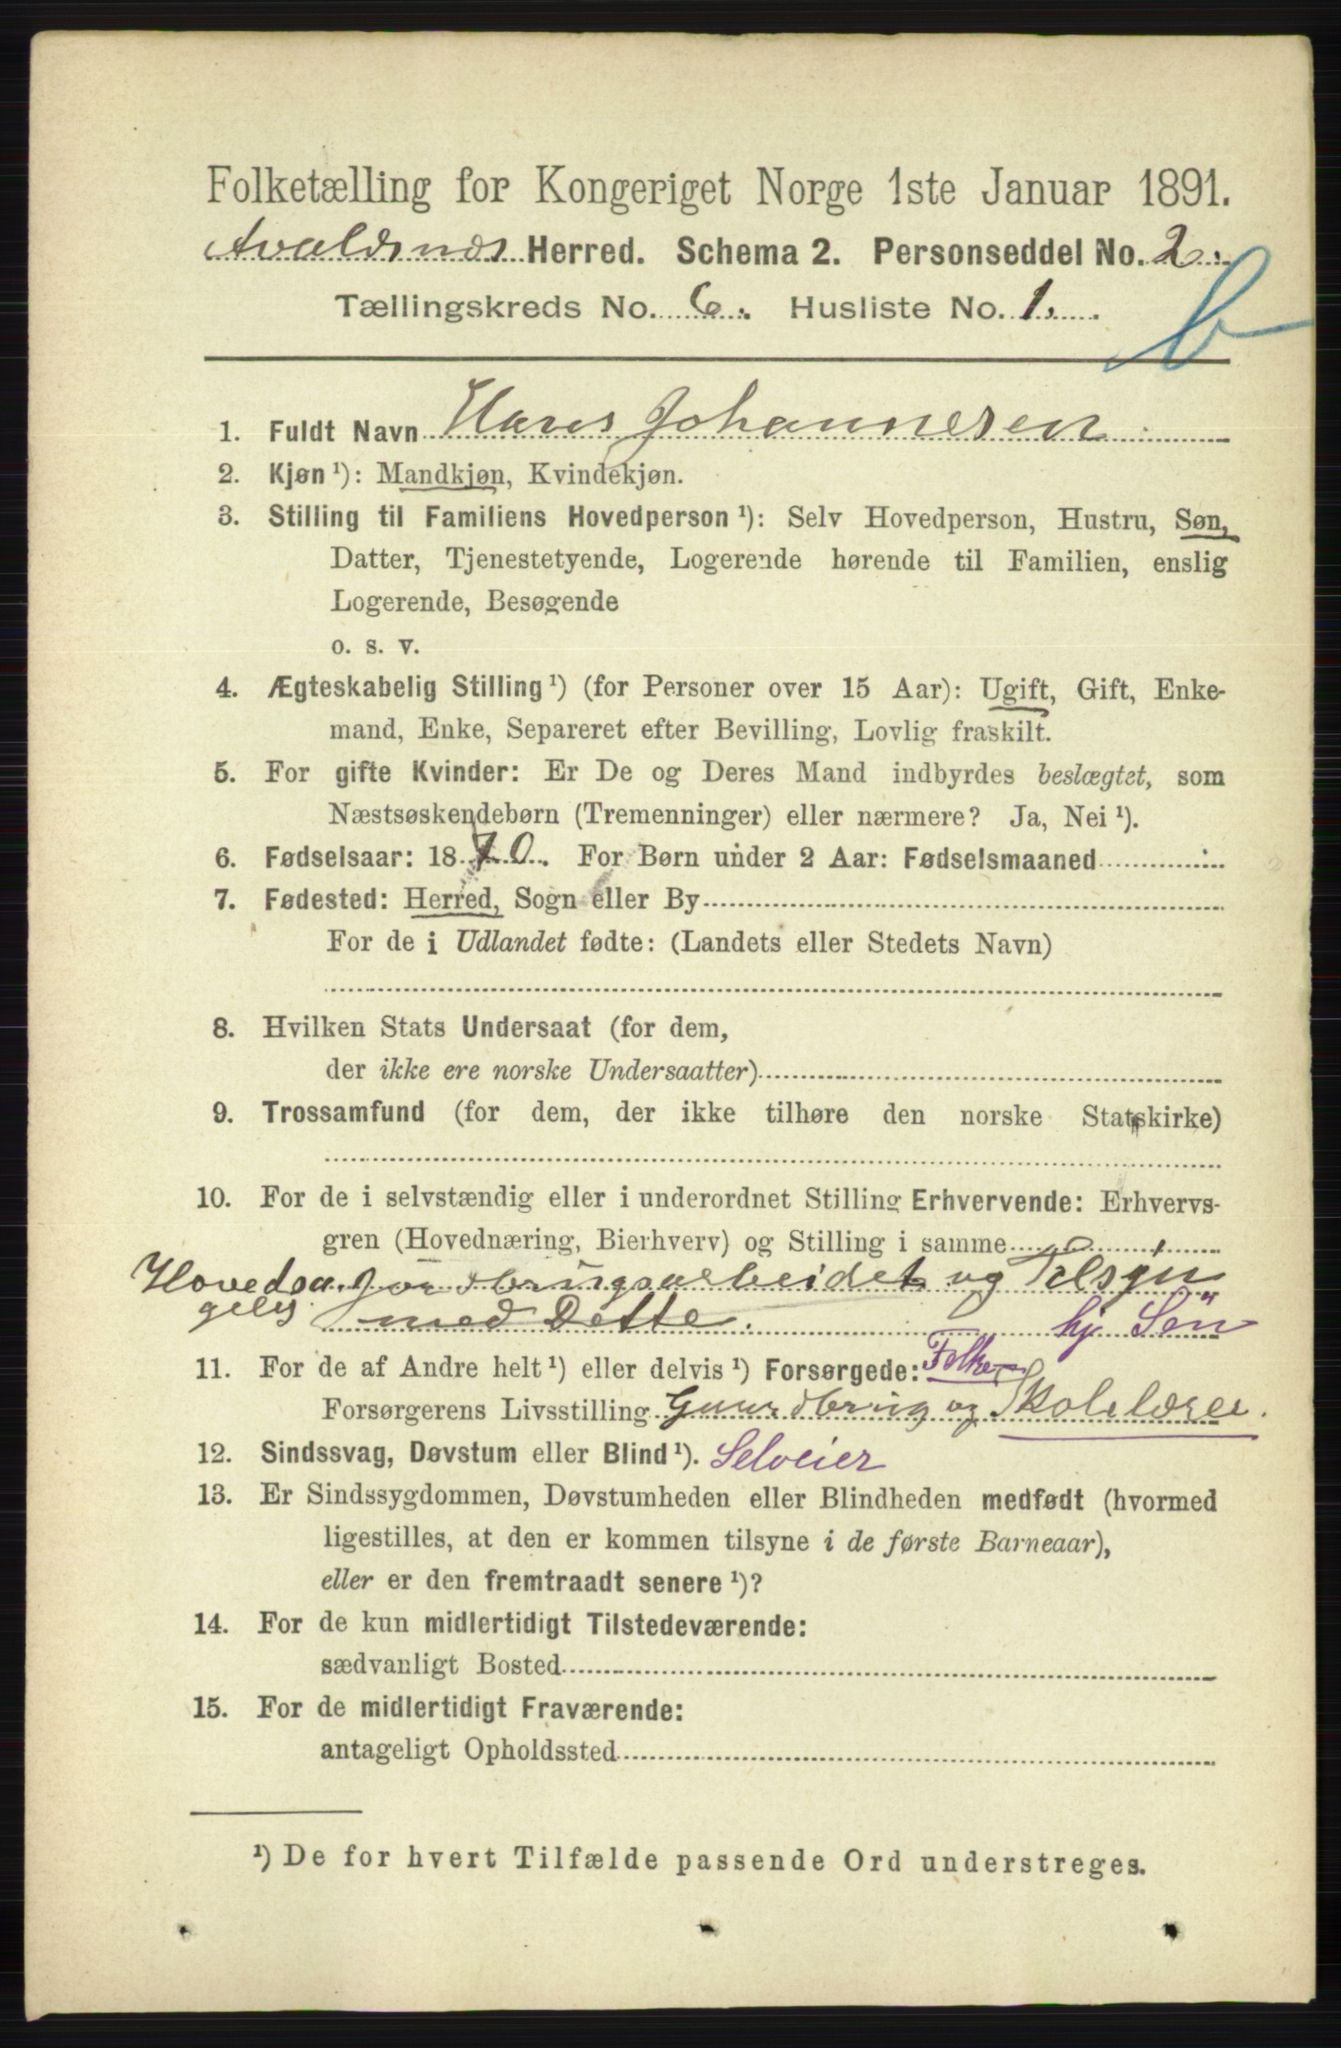 Folketælling for Kongeriget Norge 1ste Januar 1891.
Avaldsnes Herred. Schema 2. Personseddel No. 2.
Tællingskreds No. 6. Husliste No. 1.
b
1. Fuldt Navn Hans Johannesen
2. Kjøn ¹): Mandkjøn, Kvindekjøn.
3. Stilling til Familiens Hovedperson ¹): Selv Hovedperson, Hustru, Søn,
Datter, Tjenestetyende, Logerende hørende til Familien, enslig
Logerende, Besøgende
o. s. v.
4. Ægteskabelig Stilling ¹) (for Personer over 15 Aar): Ugift, Gift, Enke-
mand, Enke, Separeret efter Bevilling, Lovlig fraskilt.
5. For gifte Kvinder: Er De og Deres Mand indbyrdes beslægtet, som
Næstsøskendebørn (Tremenninger) eller nærmere? Ja, Nei ¹).
6. Fødselsaar: 1870. For Børn under 2 Aar: Fødselsmaaned
7. Fødested: Herred, Sogn eller By
For de i Udlandet fødte: (Landets eller Stedets Navn)
8. Hvilken Stats Undersaat (for dem,
der ikke ere norske Undersaatter)
9. Trossamfund (for dem, der ikke tilhøre den norske Statskirke)
10. For de i selvstændig eller i underordnet Stilling Erhvervende: Erhvervs-
gren (Hovednæring, Bierhverv) og Stilling i samme
Hovedsa. Jordbrugsarbeidet og Tilsyn
gelig med Dette. hj. Søn
11. For de af Andre helt ¹) eller delvis ¹) Forsørgede: Folke-
Forsørgerens Livsstilling Gaardbrug og Skolelærer.
12. Sindssvag, Døvstum eller Blind ¹). Selveier
13. Er Sindssygdommen, Døvstumheden eller Blindheden medfødt (hvormed
ligestilles, at den er kommen tilsyne i de første Barneaar),
eller er den fremtraadt senere ¹)?
14. For de kun midlertidigt Tilstedeværende:
sædvanligt Bosted
15. For de midlertidigt Fraværende:
antageligt Opholdssted
¹) De for hvert Tilfælde passende Ord understreges.